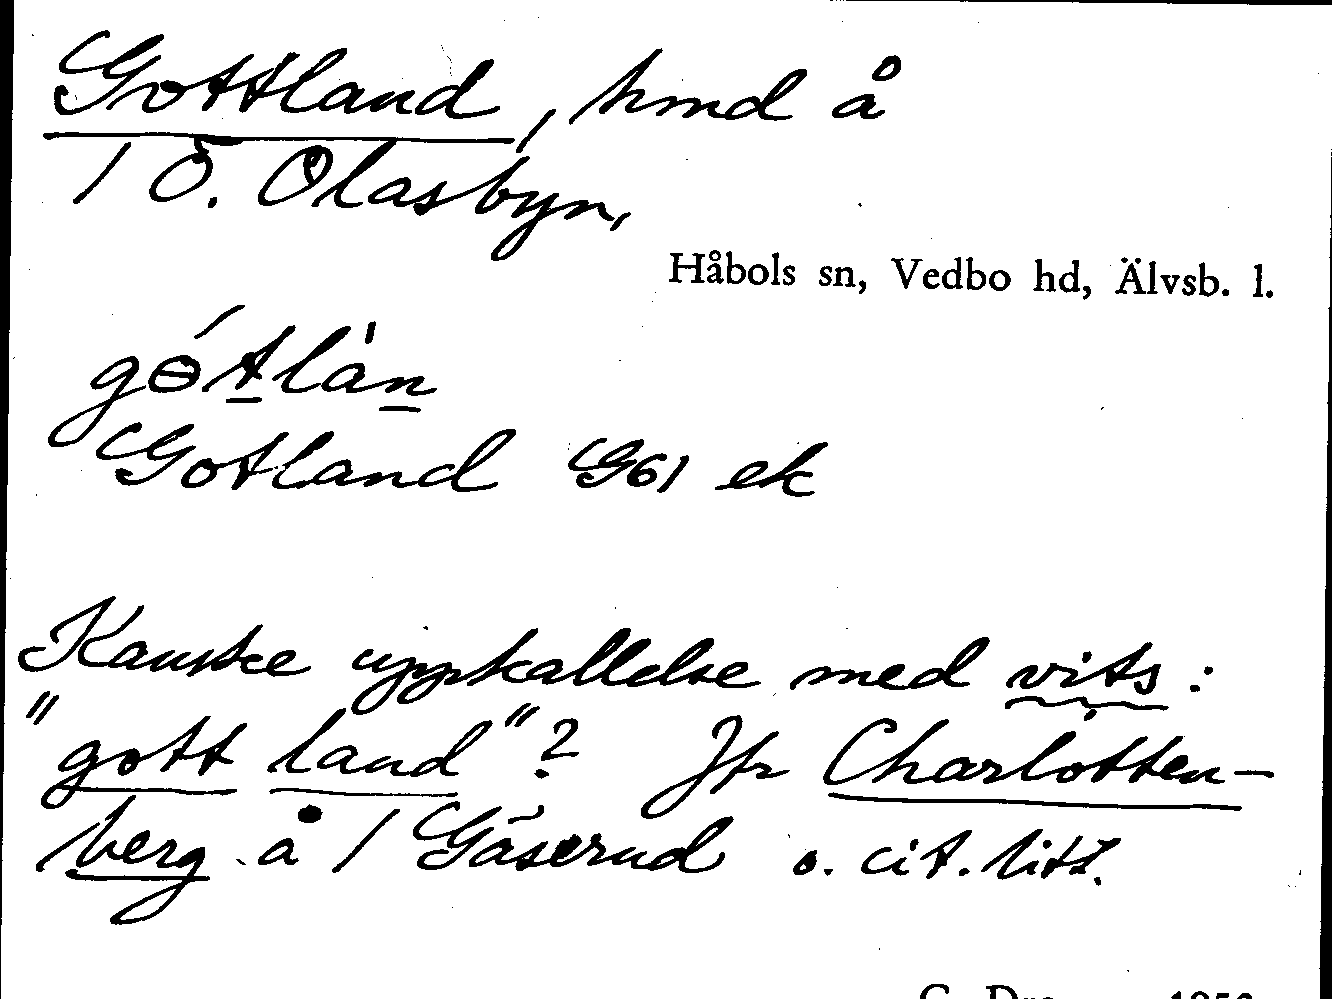 Gottland, hmd å
1 Ö. Olasbyn,
Håbols sn, Vedbo hd, Älvsb. l.
gɵ́tlàn
Gotland G61 ek
Kanske uppkallelse med vits:
"gott land"? Jfr Charlotten-
berg å 1 Gäserud o. cit. litt.